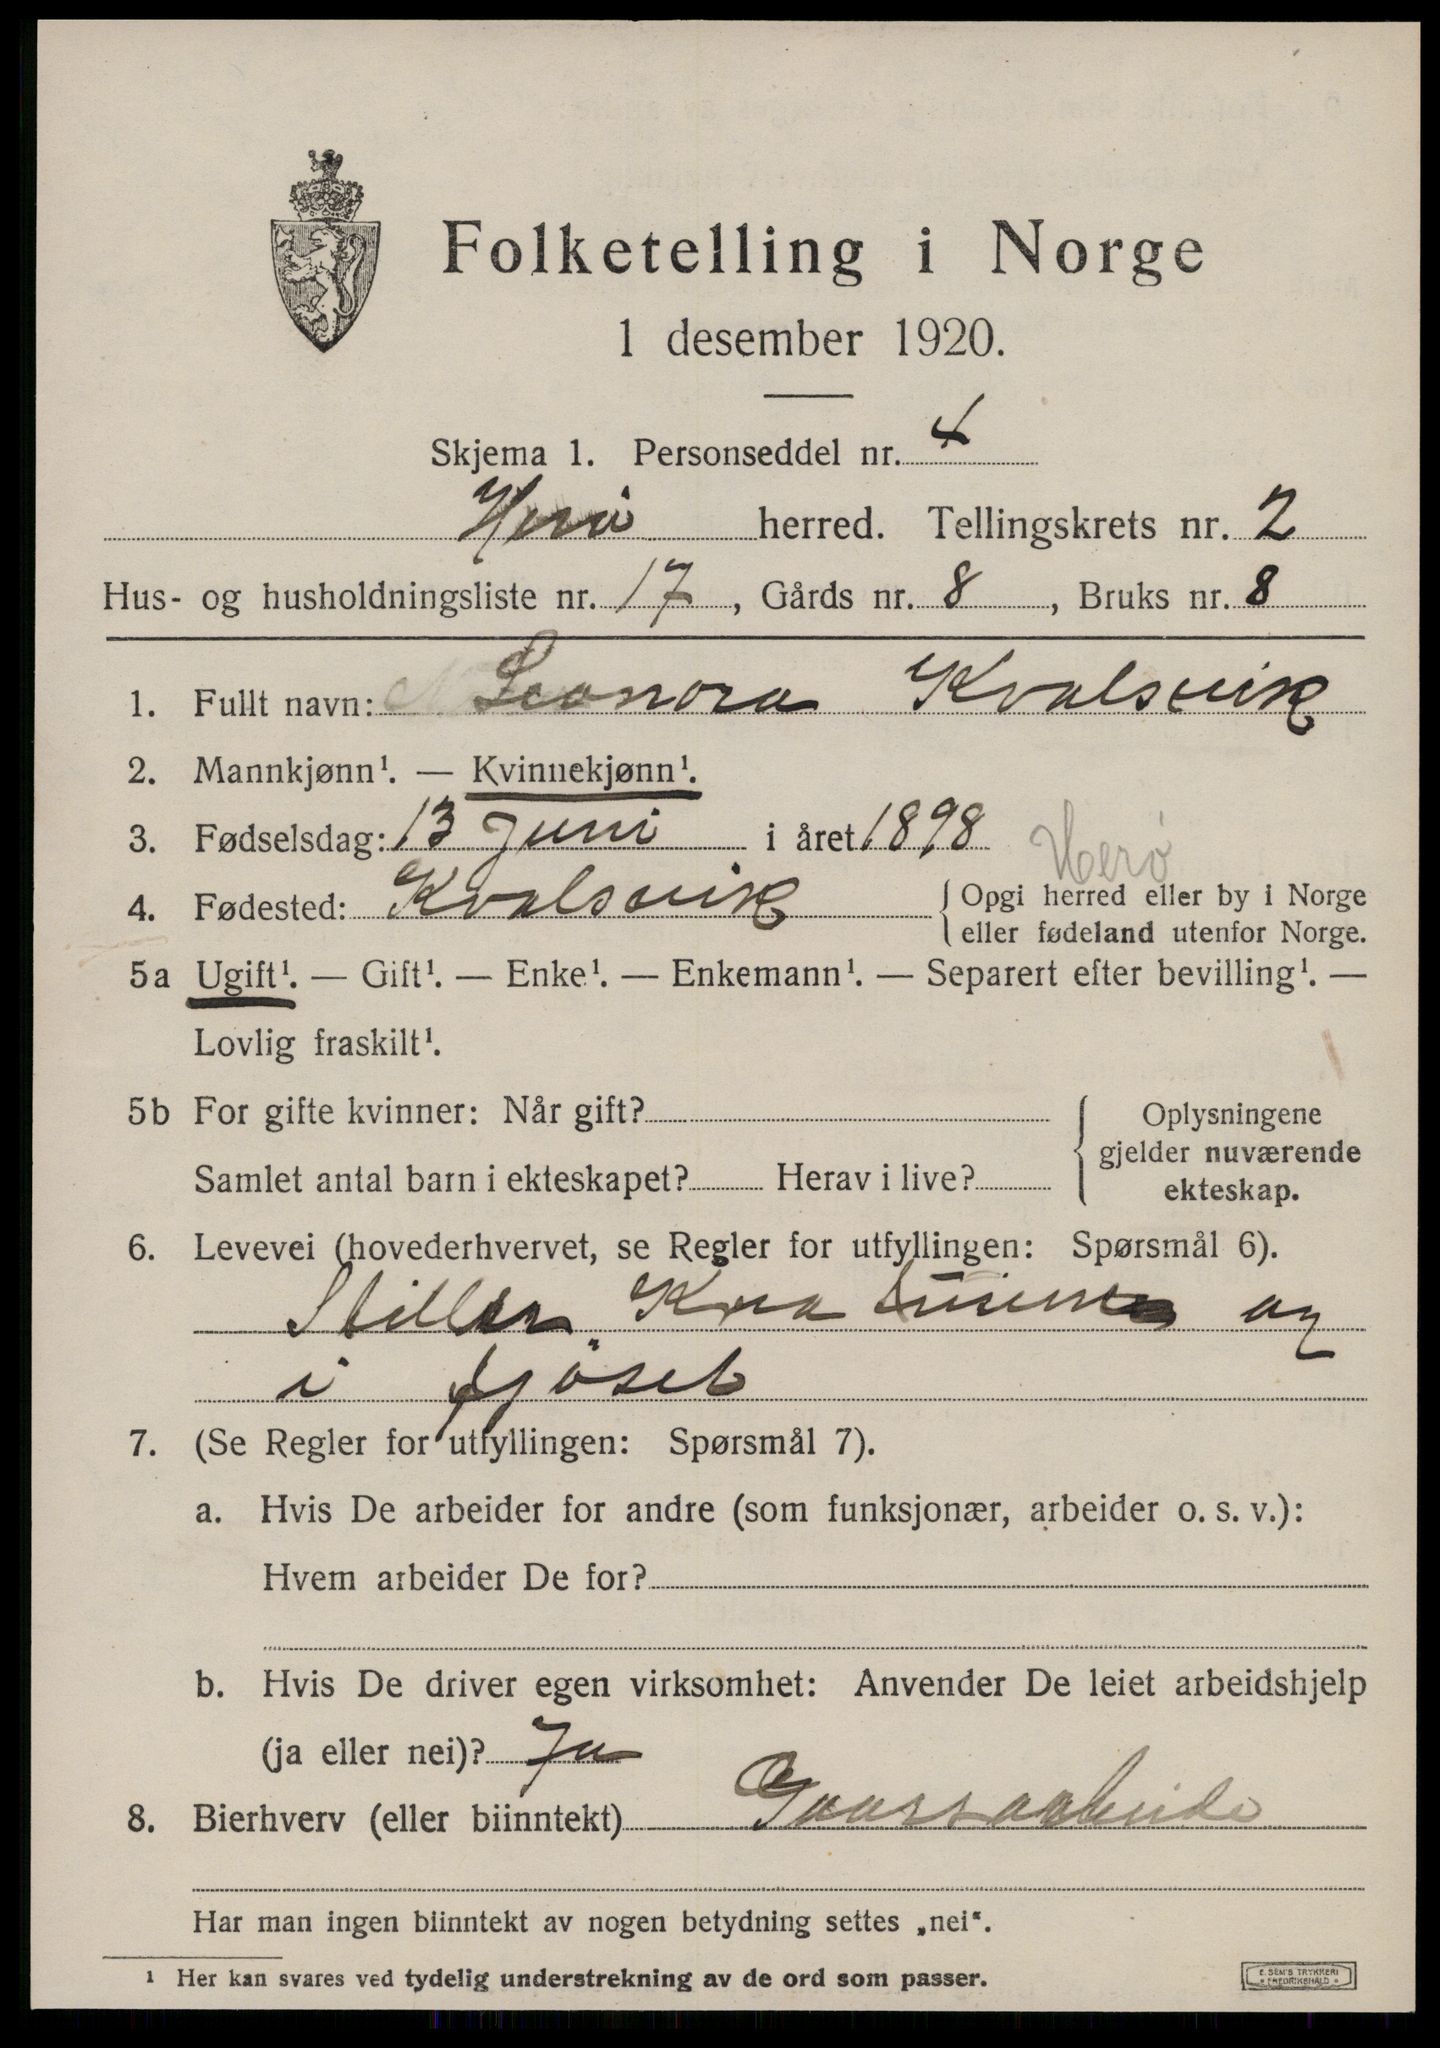 Folketelling i Norge
1 desember 1920.
Skjema 1. Personseddel nr. 4
Herö herred. Tellingskrets nr. 2
Hus- og husholdningsliste nr. 17, Gårds nr. 8, Bruks nr. 8
1. Fullt navn: Leonora Kvalsvik
2. Mannkjønn¹. — Kvinnekjønn¹.
3. Fødselsdag: 13 Juni i året 1898 Herø
4. Fødested: Kvalsvik { Opgi herred eller by i Norge
eller fødeland utenfor Norge.
5a Ugift¹. — Gift¹. — Enke¹. — Enkemann¹. — Separert efter bevilling¹. —
Lovlig fraskilt¹.
5b For gifte kvinner: Når gift? { Oplysningene
gjelder nuværende
Samlet antal barn i ekteskapet? Herav i live? ekteskap.
6. Levevei (hovederhvervet, se Regler for utfyllingen: Spørsmål 6).
Steller og
i fjöset
7. (Se Regler for utfyllingen: Spørsmål 7).
a. Hvis De arbeider for andre (som funksjonær, arbeider o. s. v.):
Hvem arbeider De for?
b. Hvis De driver egen virksomhet: Anvender De leiet arbeidshjelp
(ja eller nei)? Ja
8. Bierhverv (eller biinntekt)
Har man ingen biinntekt av nogen betydning settes „nei“.
¹ Her kan svares ved tydelig understrekning av de ord som passer.
E. SEM'S TRYKKERI
FREDRIKSHALD